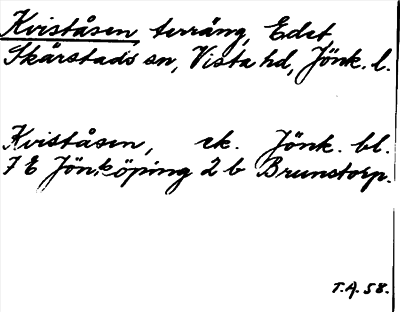 Kviståsen, terräng, Edet,
Skärstads sn, Vista hd, Jönk. l.
Kviståsen, ek. Jönk. bl.
7 E Jönköping 2 b Brunstorp.
T.A. 58.